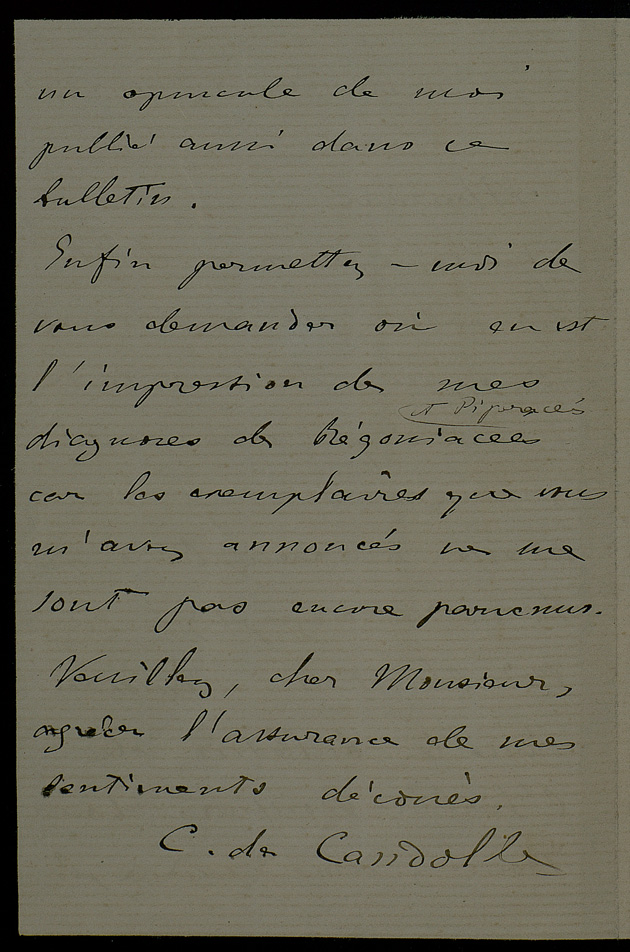 un opuscule de moi
publié aussi dans ce
bulletin.
Enfin permettez-moi de
vous demander où en est
l'impression de mes
et Piperacés
diagnoses de Bégoniacées
car les exemplaires que vous
m'avez annoncés ne me
sont pas encore parvenus.
Veuillez, cher Monsieur,
agréer l'assurance de mes
sentiments dévoués.
C. de Candolle